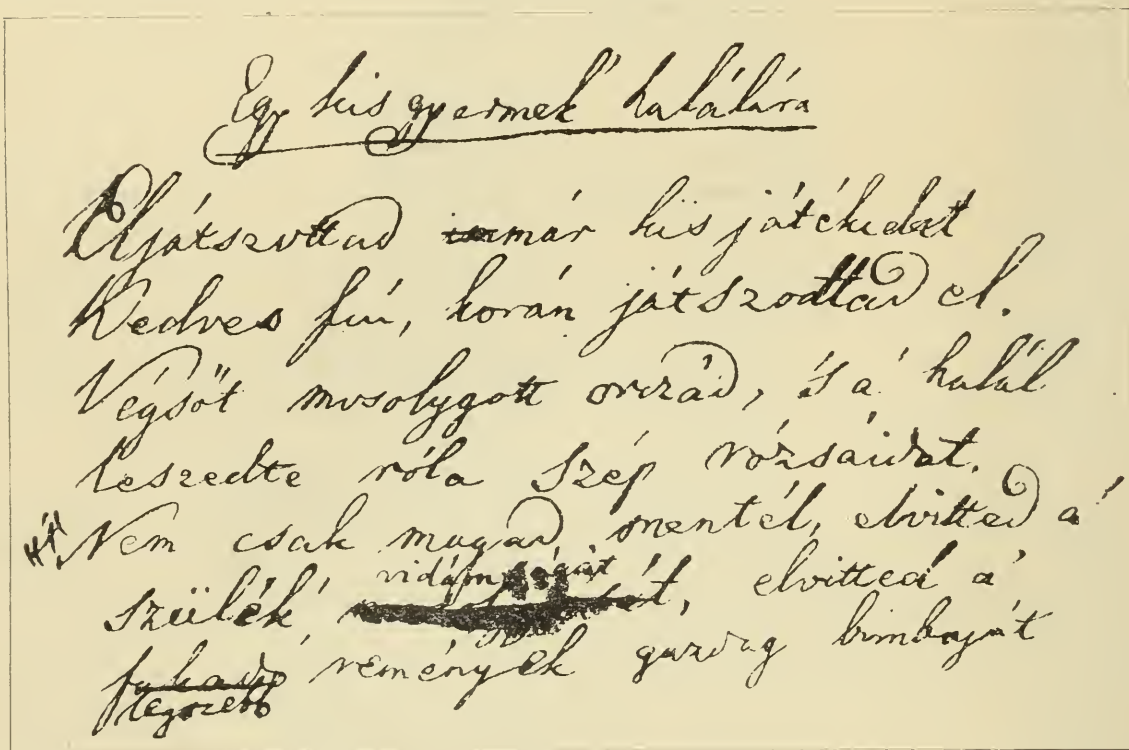 Egy kis gyermek' halálára
Eljátszottad már kis játékidat
Kedves fiú, korán játszottad el.
Végsőt mosolygott orczád, 's a' halál
leszedte róla szép rózsáidat.
Nem csak magad mentél, elvitted a'
szülék' vidámságát, elvitted a'
fakadó remények gazdag bimbaját
legszebb